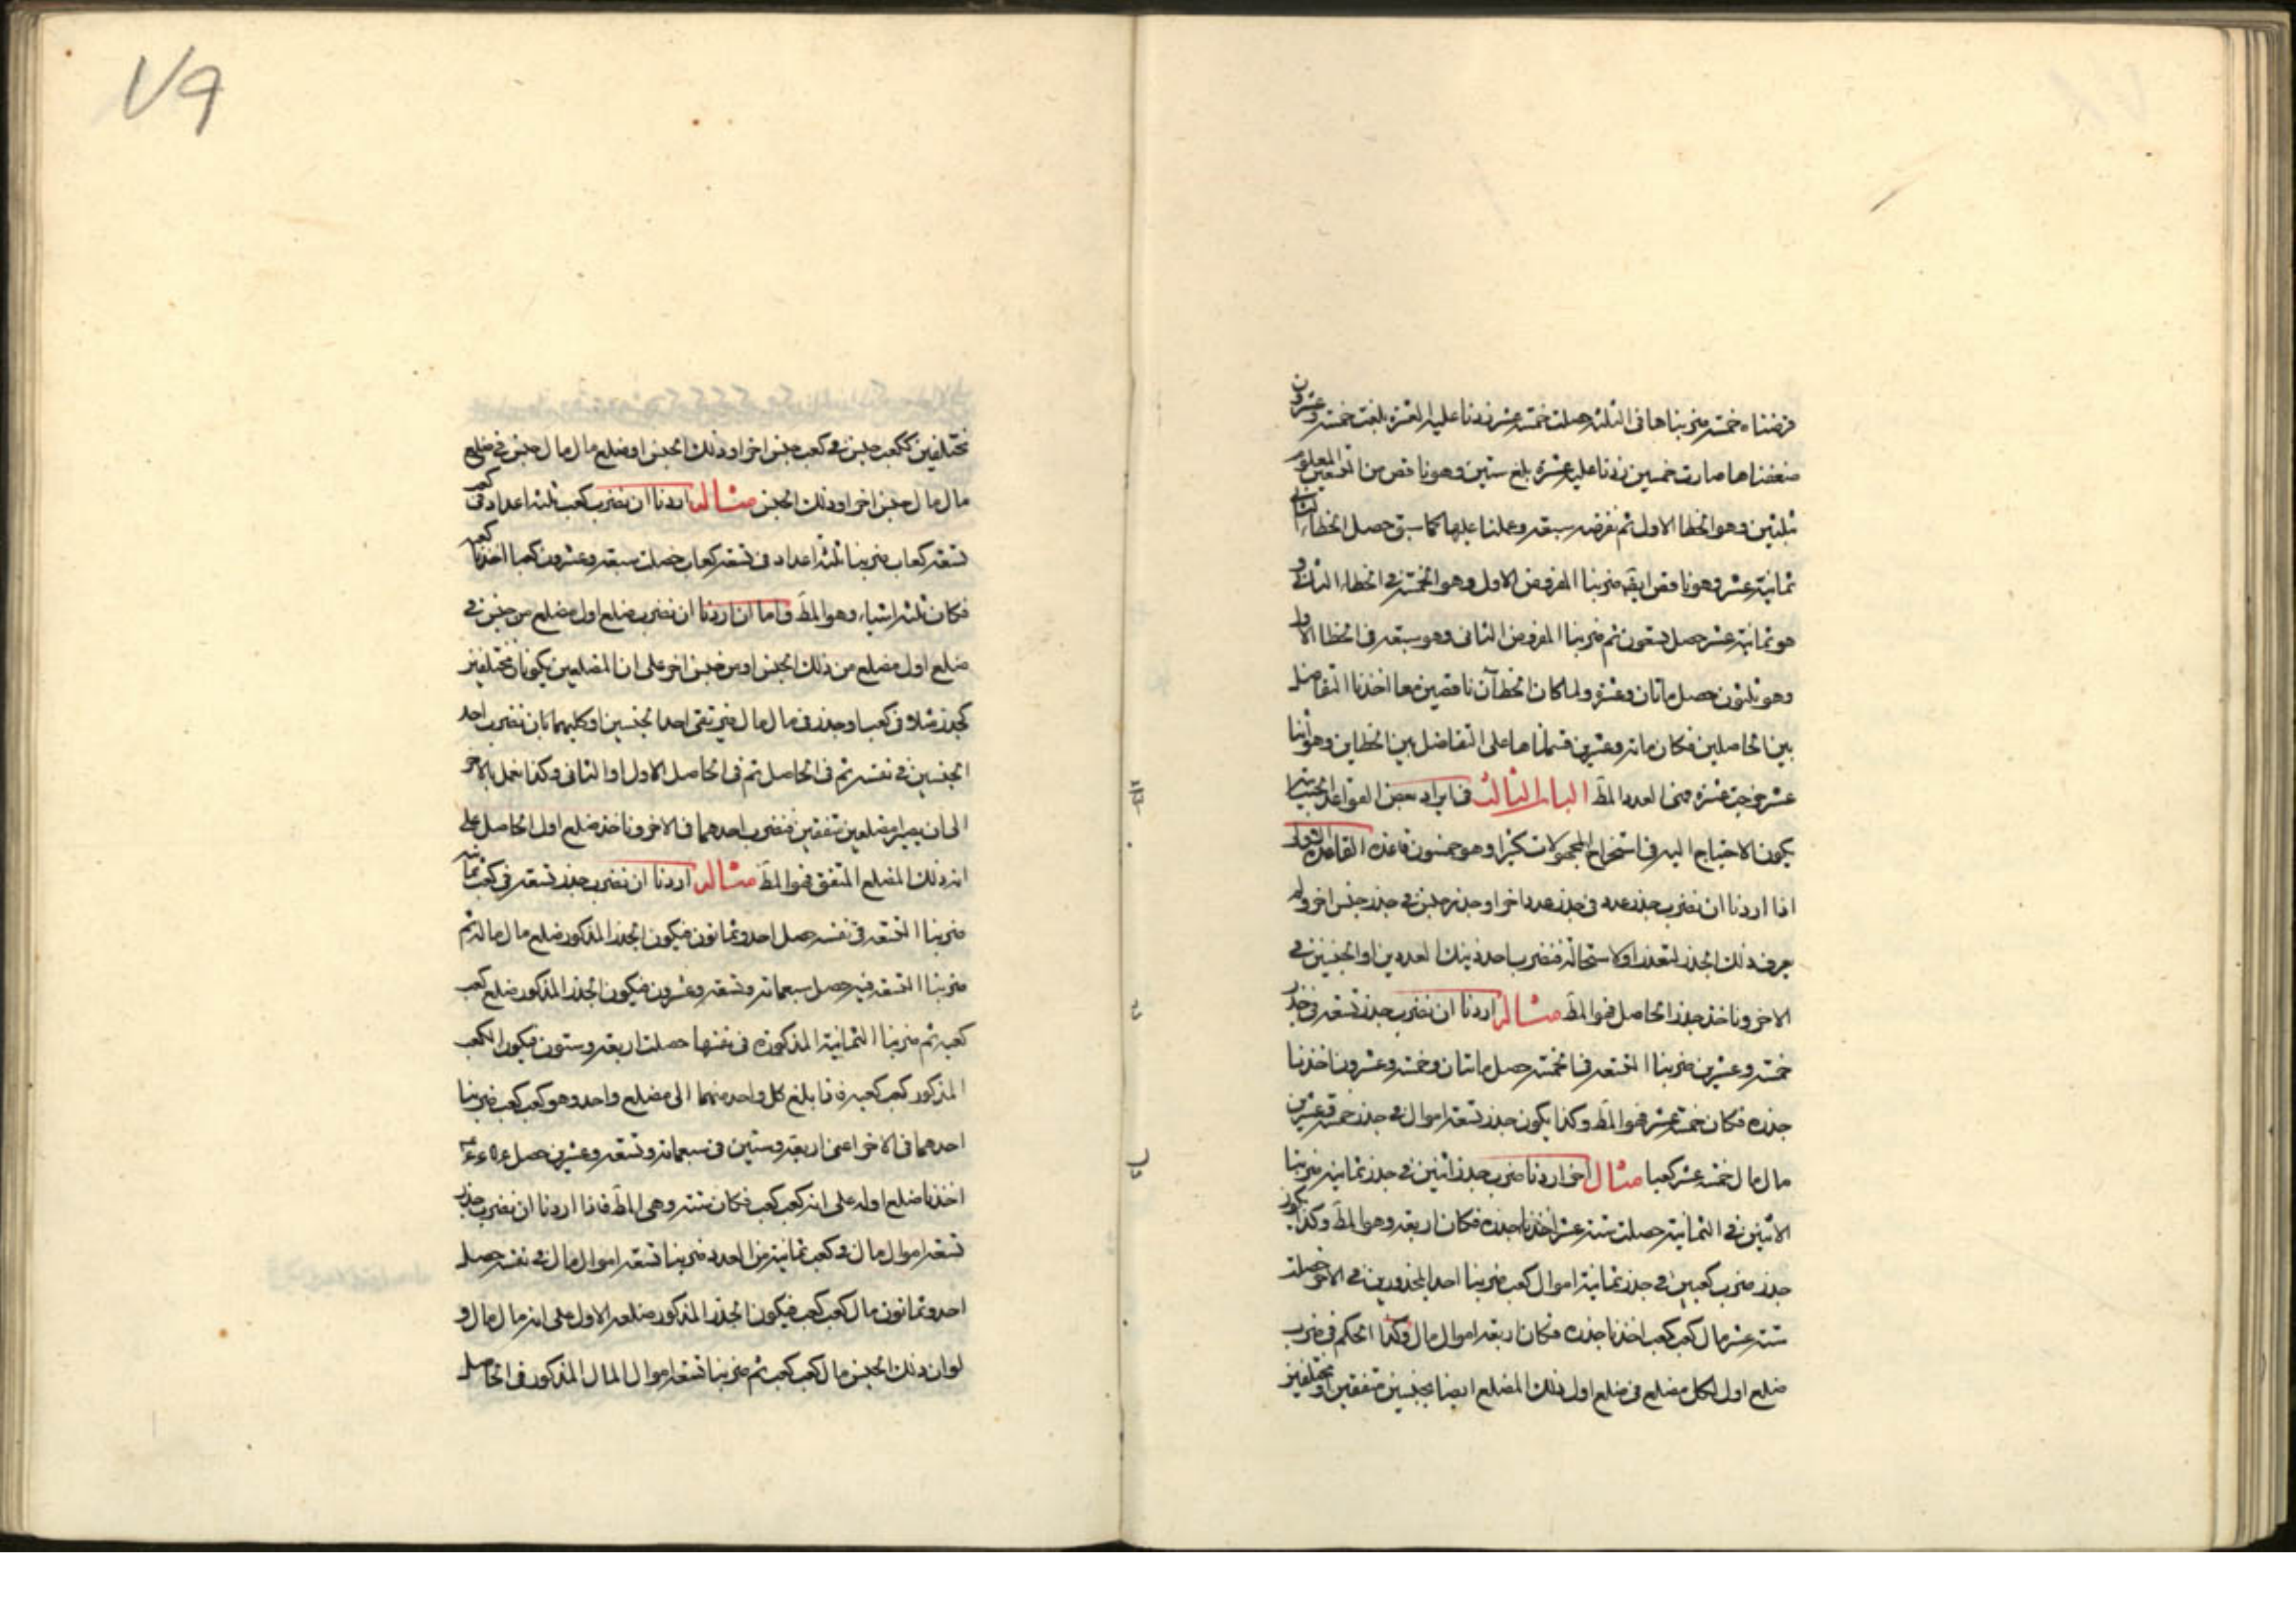 فرضناه خمسة ضربناها فى الثلثة حصلت خمسة عشر زدنا عليه العشرة بلغت خمسة وعشرون
ضعفناها صارت خمسين زدنا عليه عشرة بلغ ستين وهو ناقص من التسعين المعلوم
ثلثين وهو الخطا الاول ثم نفرضه سبعة وعملنا عليها كما سبق حصل الخطاء الثانى
ثمانية عشر وهو ناقص ايضه ضربنا المفروض الاول وهو الخمسة فى الخطاء الثانى و
هو ثمانية عشر حصل تسعون ثم ضربنا المفروض الثانى وهو سبعة فى الخطا الاول
وهو ثلثون حصل ماتان وعشرة ولما كان الخطآن ناقصين معا اخذنا التفاضل
بين الحاصلين فكان مائة وعشرين قسمناها على التفاضل بين الخطاين وهو اثنا
عشر خرجت عشرة فهى العدد المط الباب الثالث فى ايراد بعض القواعد الحسابية
يكون الاحتياج اليه فى استخراج المجهولات كثيرا وهو خمسون قاعدة القاعدة الاولى
اذا اردنا ان نضرب جذر عدد فى جذر عدد اخر او جذر جنس فى جذر جنس اخر ولم
يعرف ذلك الجذر لتعذر او لاستحالة فنضرب احد ذينك العددين او الجنسين فى
الاخر وناخذ جذر الحاصل فهو المط مثاله اردنا ان نضرب جذر تسعة فى جذر
خمسة وعشرين ضربنا التسعة فى الخمسة حصل ماتان وخمسة وعشرون اخذنا
جذره فكان خمسة عشر فهو المط وكذا يكون جذر تسعة اموال فى جذر خمسة وعشرين
مال مال خمسة عشر كعبا مثال اخر اردنا ضرب جذر اثنين فى جذر ثمانية ضربنا
الاثنين فى الثمانية حصلت ستة عشر اخذنا جذره فكان اربعة وهو المط وكذا يكون
جذر ضرب كعبين فى جذر ثمانية اموال كعب ضربنا احد المجذورين فى الاخر حصلت
ستة عشر مال كعب كعب اخذنا جذره فكان اربعة اموال مال وكذا الحكم فى ضرب
ضلع اول لكل مضلع فى ضلع اول ذلك المضلع ايضا بجنسين متفقين او مختلفين
٧٩
مختلفين ككعب جنس فى كعب جنس اخر او ذلك الجنس او ضلع مال مال جنس فى ضلع
مال مال جنس اخر او ذلك الجنس مثاله اردنا ان نضرب كعب ثلثة اعداد فى كعب
تسعة كعاب ضربنا ثلثة اعداد فى تسعة كعاب حصلت سبعة وعشرون كعبا اخذنا كعبه
فكان ثلثة اشياء وهو المط واما ان اردنا ان نضرب ضلع اول مضلع من جنس فى
ضلع اول مضلع من ذلك الجنس او من جنس اخر على ان المضلعين يكونان مختلفين
كجذر مثلا فى كعب او جذر فى مال مال احد الجنسين او كليهما بان نضرب احد
الجنسين فى نفسه ثم فى الحاصل ثم فى الحاصل الاول او الثانى وكذا نعمل بالاخر
الى ان يصير مضلعين متفقين فنضرب احدهما فى الاخر وناخذ ضلع اول الحاصل على
انه ذلك المضلع المتفق فهو المط مثاله اردنا ان نضرب جذر تسعة فى كعب ثمانية
ضربنا التسعة فى نفسه حصل احد وثمانون فيكون الجذر المذكور ضلع مال ماله ثم
ضربنا التسعة فيه حصل سبعمائة وتسعة وعشرون فيكون الجذر المذكور ضلع كعب
كعبه ثم ضربنا الثمانية المذكورة فى نفسها حصلت اربعة وستون فيكون الكعب
المذكور كعب كعبه فبلغ كل واحد منهما الى مضلع واحد وهو كعب كعب ضربنا
احدهما فى الاخر اعنى اربعة وستين فى سبعمائة وتسعة وعشرين حصل
اخذنا ضلع اوله على انه كعب كعب فكان ستة وهى المط فاذا اردنا ان نضرب جذر
تسعة اموال مال فى كعب ثمانية من العدد ضربنا تسعة اموال مال فى نفسه حصل
احد وثمانون مال كعب كعب فيكون الجذر المذكور ضلعه الاول على انه مال مال و
لو ان ذلك الجنس مال كعب كعب ثم ضربنا تسعة اموال المال المذكور فى الحاصل